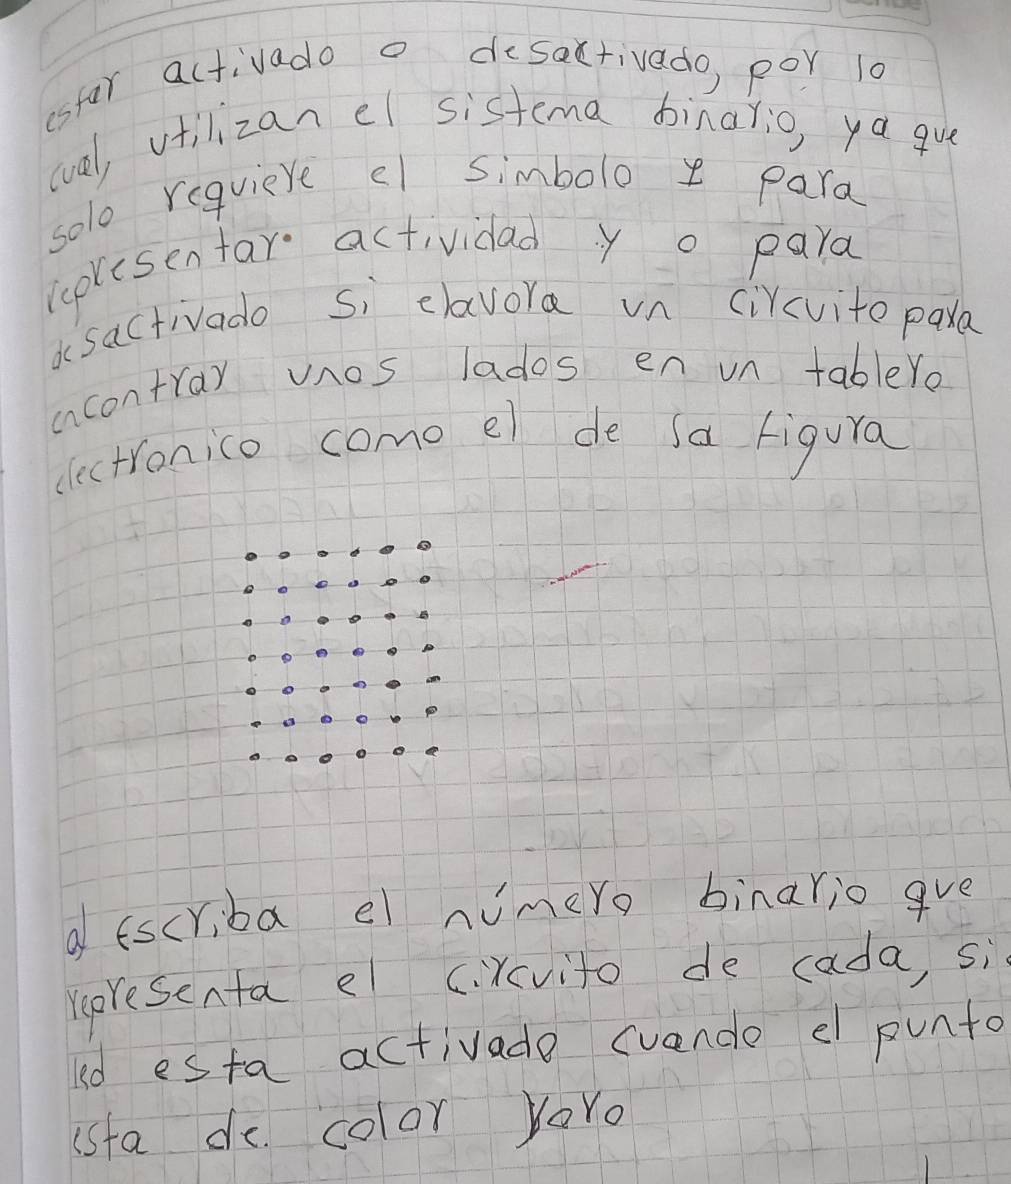 estar activado o desactivado, por lo
cual, utilizan el sistema binario, ya que
solo requiere el simbolo 1 para
representar actividad y o para
desactivado si elavora un circuito para
encontrar unos lados en un tablero
electronico como el de la figura
a) Escriba el número binario que
representa el circuito de cada, si
led esta activado cuando el punto
esta de color